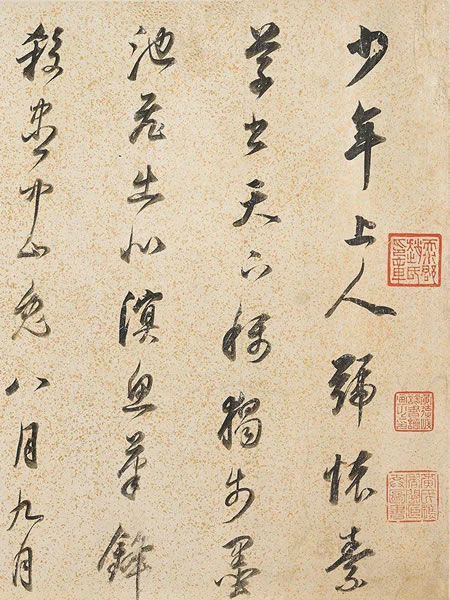 少年上人號懷素
草书天下稱獨步墨
池飛出北溟魚筆鋒
殺盡中山兔八月九月